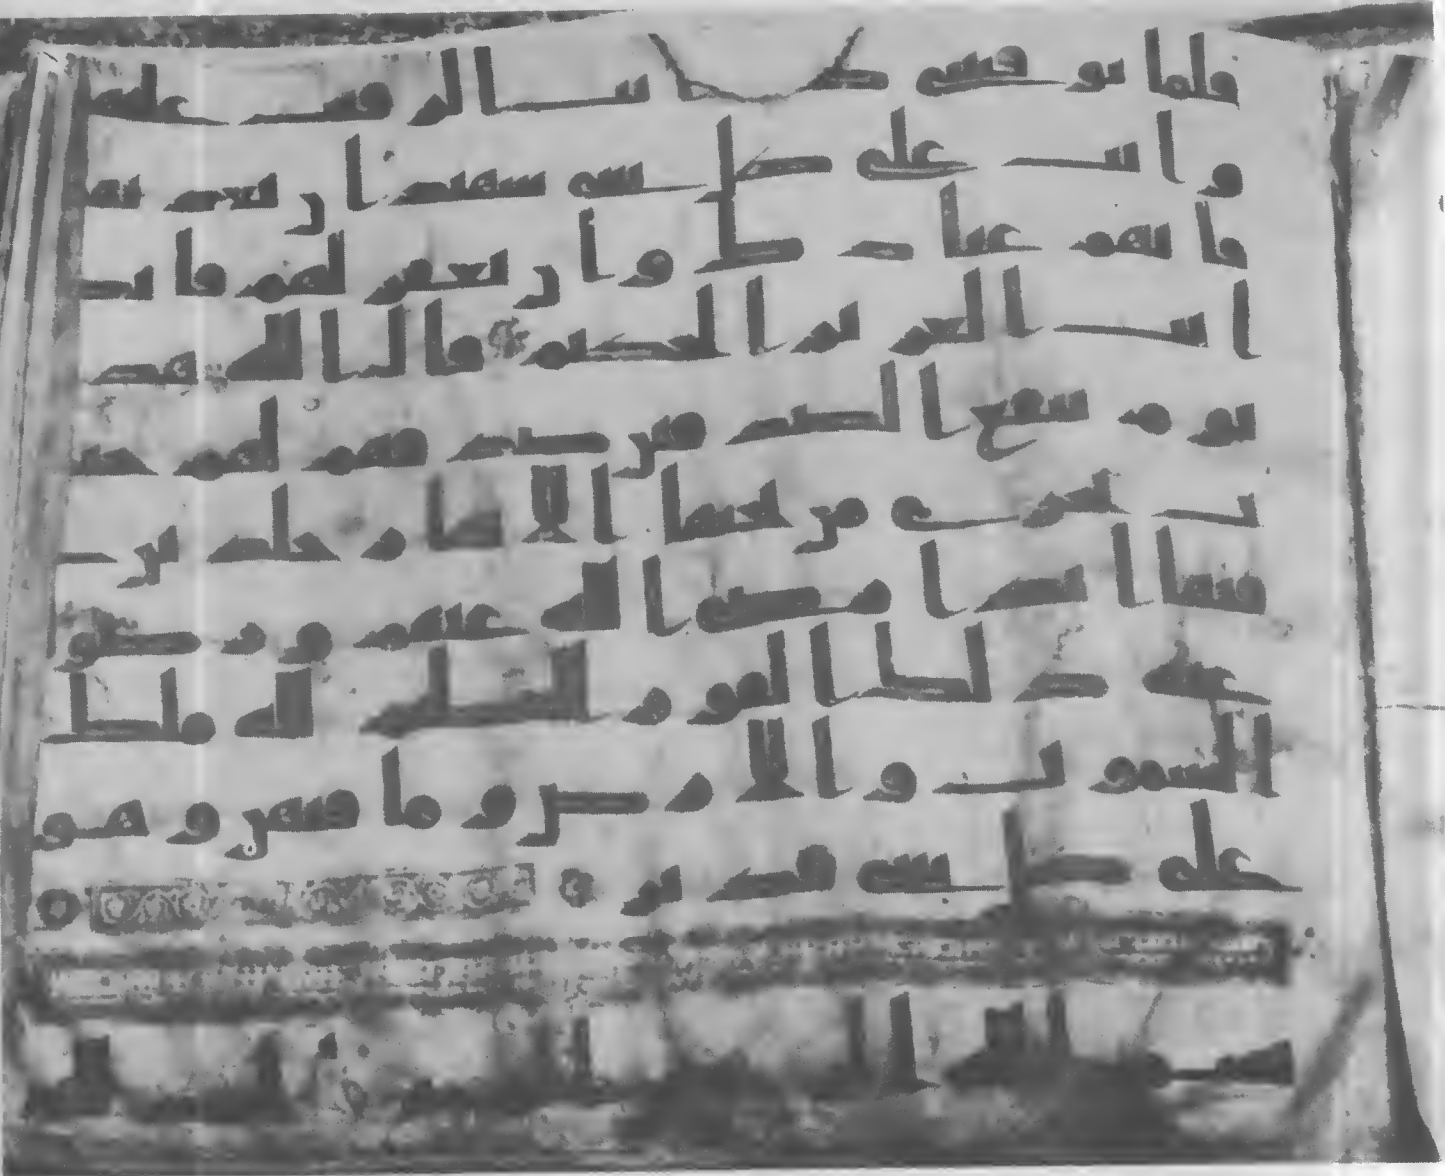 فلما توفيتنى كنت انت الرقيب عليهم
وانت على كل شى شهيد ان تعذبهم
فانهم عبادك وان تغفر لهم فانك
انت العزيز الحكيم قال الله هذا
يوم ينفع الصدقين صدقهم لهم جنت
تجرى من تحتها الانهر خلدين
فيها ابدا رضى الله عنهم ورضوا
عنه ذلك الفوز العظيم لله ملك
السموت والارض وما فيهن وهو
على كل شى قدير
بسم الله